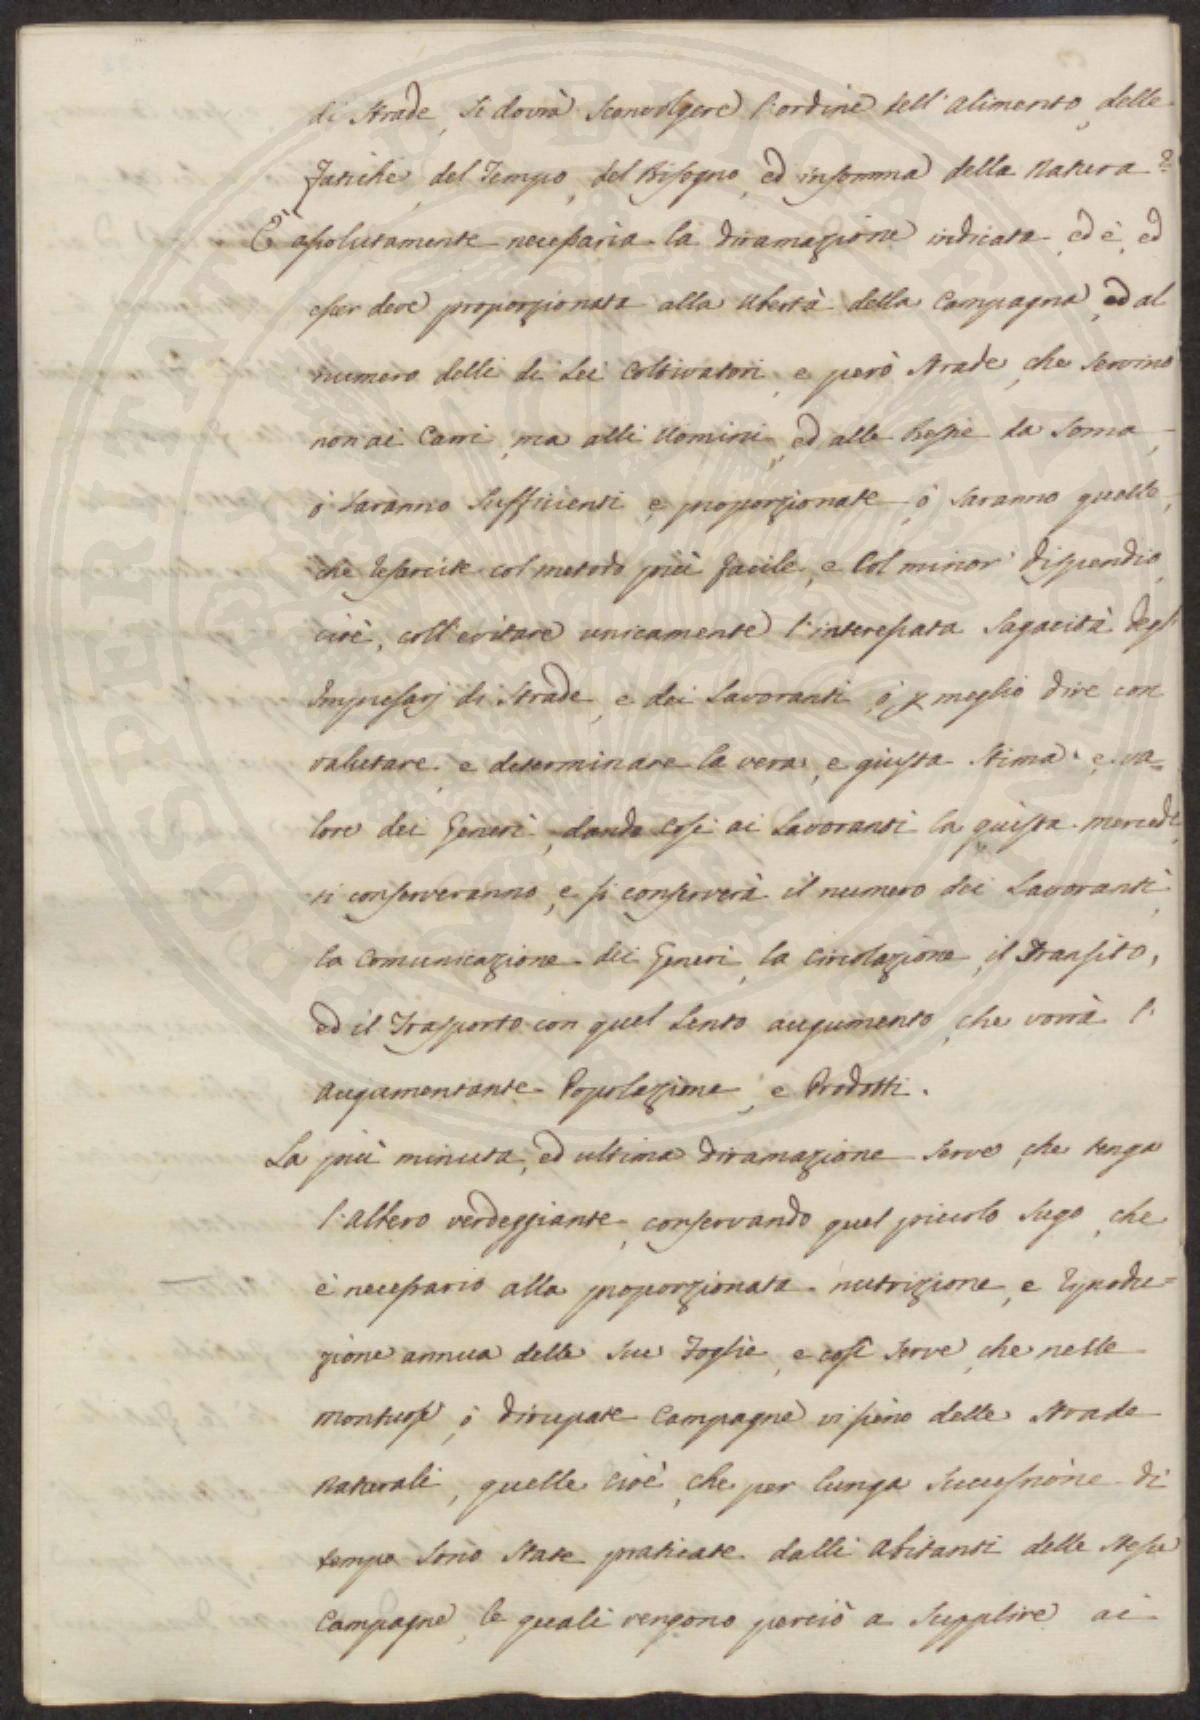 di Strade, si dovrà sconvolgere l'ordine dell'alimento, delle
fatiche, del Tempo, del Bisogno, ed insomma della Natura?
E' assolutamente necessaria la diramazione indicata, ed è, ed
esser deve proporzionata alla Ubertà della Campagna, ed al
numero delli di Lei Coltivatori, e però Strade, che servino
non ai Carri, ma alli Uomini, ed alle Bestie da Soma,
ò saranno sufficienti, e proporzionate, ò saranno quelle,
che resarcite col metodo più facile, e Col minor dispendio,
cioè, coll'evitare unicamente l'interessata sagacità degl'
Impresarj di Strade, e dei Lavoranti, ò p meglio dire con
valutare, e determinare la vera, e giusta stima, e va=
lore dei Generi, dando così ai Lavoranti la giusta mercede,
si conserveranno, e si conserverà il numero dei Lavoranti,
la Comunicazione dei Generi, la Circolazione, il Transito,
ed il Trasporto con quel Lento augumento, che vorrà l'
augumentante Popolazione, e Prodotti.
La più minuta, ed ultima diramazione serve, che tenga
l'albero verdeggiante, conservando quel piccolo sugo, che
è necessario alla proporzionata nutrizione, e riprodu=
zione annua delle sue Foglie, e così serve, che nelle
montuose, ò dirupate Campagne vi siено delle Strade
Naturali, quelle cioè, che per lunga successione di
tempo sono state praticate dalli abitanti delle stesse
Campagne, le quali vengono perciò a supplire ai
BOSPERITATI PUBLICAE AUGENDAE